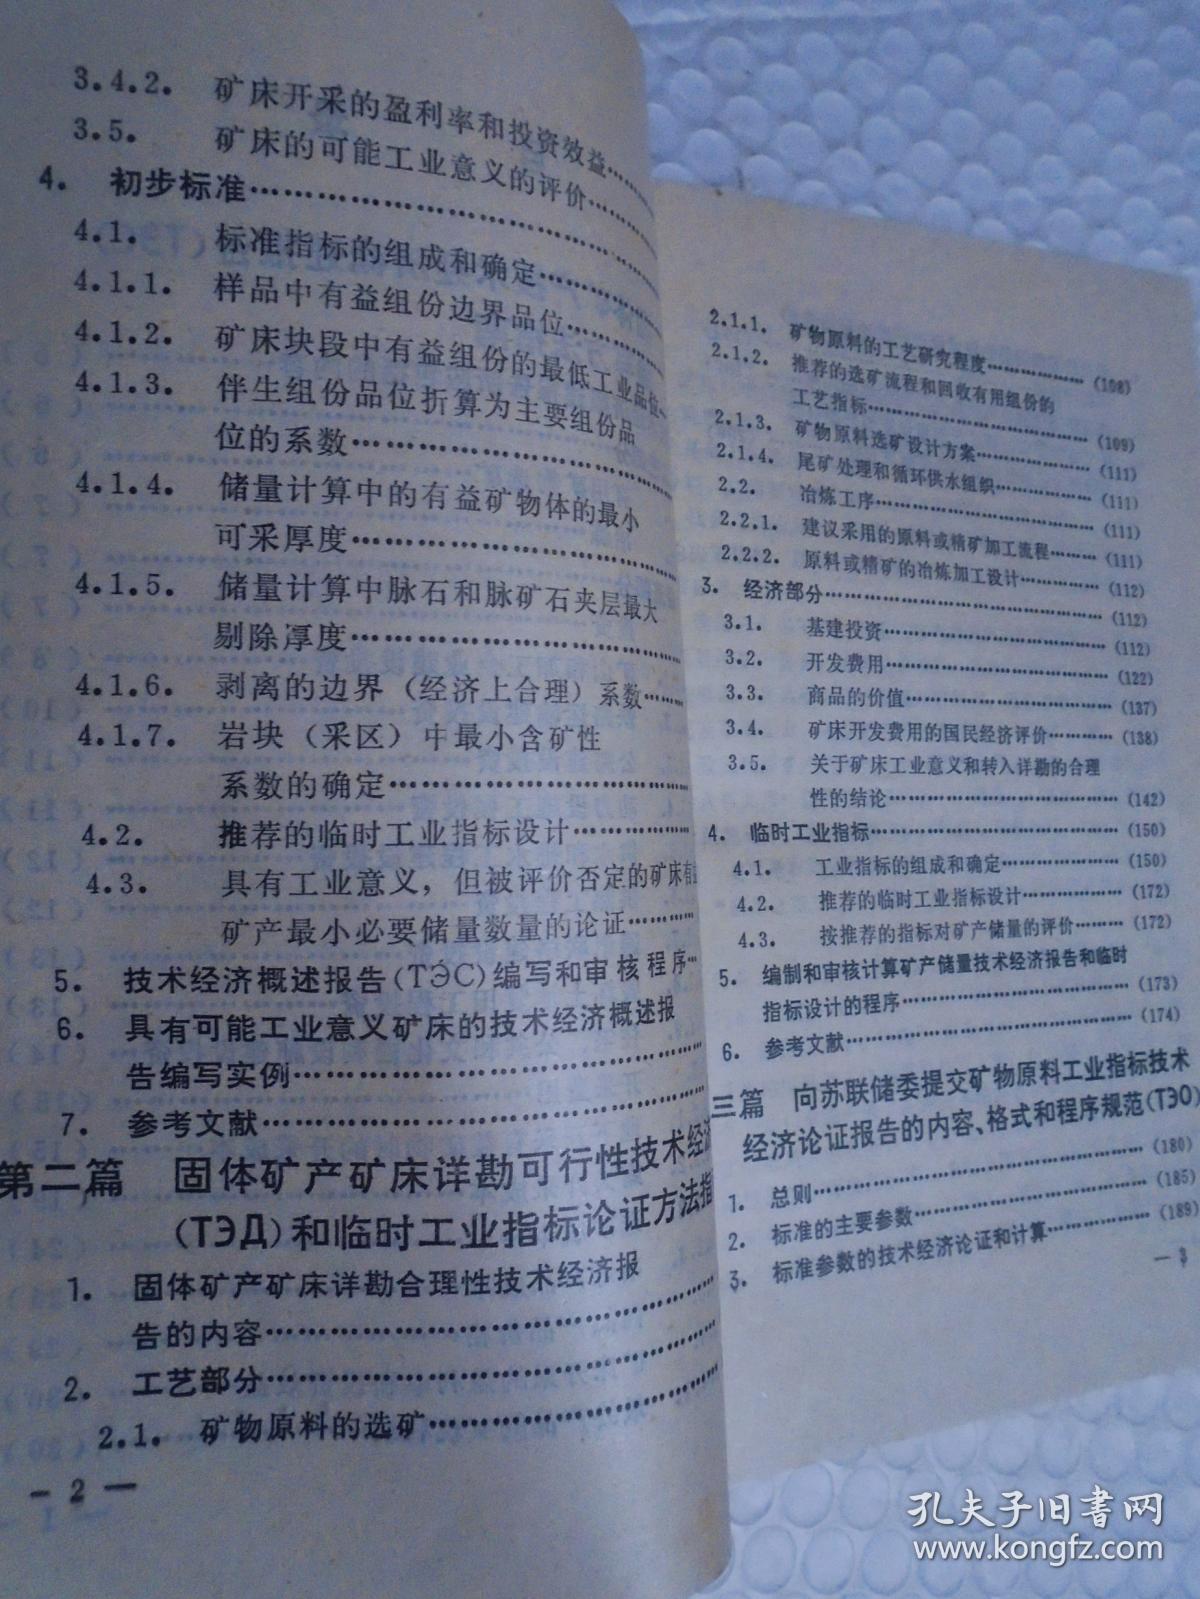 3.4.2. 矿床开采的盈利率和投资效益………
3.5. 矿床的可能工业意义的评价………
4. 初步标准………………………
4.1. 标准指标的组成和确定………
4.1.1. 样品中有益组份边界品位………
4.1.2. 矿床块段中有益组份的最低工业品位…
4.1.3. 伴生组份品位折算为主要组份品
位的系数………………………
4.1.4. 储量计算中的有益矿物体的最小
可采厚度………………………
4.1.5. 储量计算中脉石和脉矿石夹层最大
剔除厚度………………………
4.1.6. 剥离的边界（经济上合理）系数……
4.1.7. 岩块（采区）中最小含矿性
系数的确定………………………
4.2. 推荐的临时工业指标设计…………
4.3. 具有工业意义，但被评价否定的矿床有
矿产最小必要储量数量的论证………
5. 技术经济概述报告(ТЭС)编写和审核程序…
6. 具有可能工业意义矿床的技术经济概述报
告编写实例………………………
7. 参考文献………………………
第二篇 固体矿产矿床详勘可行性技术经济
(ТЭД)和临时工业指标论证方法指
1. 固体矿产矿床详勘合理性技术经济报
告的内容………………………
2. 工艺部分………………………
2.1. 矿物原料的选矿………………………
— 2 —
2.1.1. 矿物原料的工艺研究程度……………(108)
2.1.2. 推荐的选矿流程和回收有用组份的
工艺指标………………………(109)
2.1.3. 矿物原料选矿设计方案……………(111)
2.1.4. 尾矿处理和循环供水组织……………(111)
2.2. 冶炼工序………………………(111)
2.2.1. 建议采用的原料或精矿加工流程………(111)
2.2.2. 原料或精矿的冶炼加工设计…………(112)
3. 经济部分………………………(112)
3.1. 基建投资………………………(112)
3.2. 开发费用………………………(122)
3.3. 商品的价值………………………(137)
3.4. 矿床开发费用的国民经济评价…………(138)
3.5. 关于矿床工业意义和转入详勘的合理
性的结论………………………(142)
4. 临时工业指标………………………(150)
4.1. 工业指标的组成和确定………………(150)
4.2. 推荐的临时工业指标设计……………(172)
4.3. 按推荐的指标对矿产储量的评价………(172)
5. 编制和审核计算矿产储量技术经济报告和临时
指标设计的程序………………………(173)
6. 参考文献………………………(174)
三篇 向苏联储委提交矿物原料工业指标技术
经济论证报告的内容、格式和程序规范(ТЭО)
1. 总则………………………(180)
2. 标准的主要参数………………………(185)
3. 标准参数的技术经济论证和计算…………(189)
— 3
孔夫子旧书网
www.kongfz.com